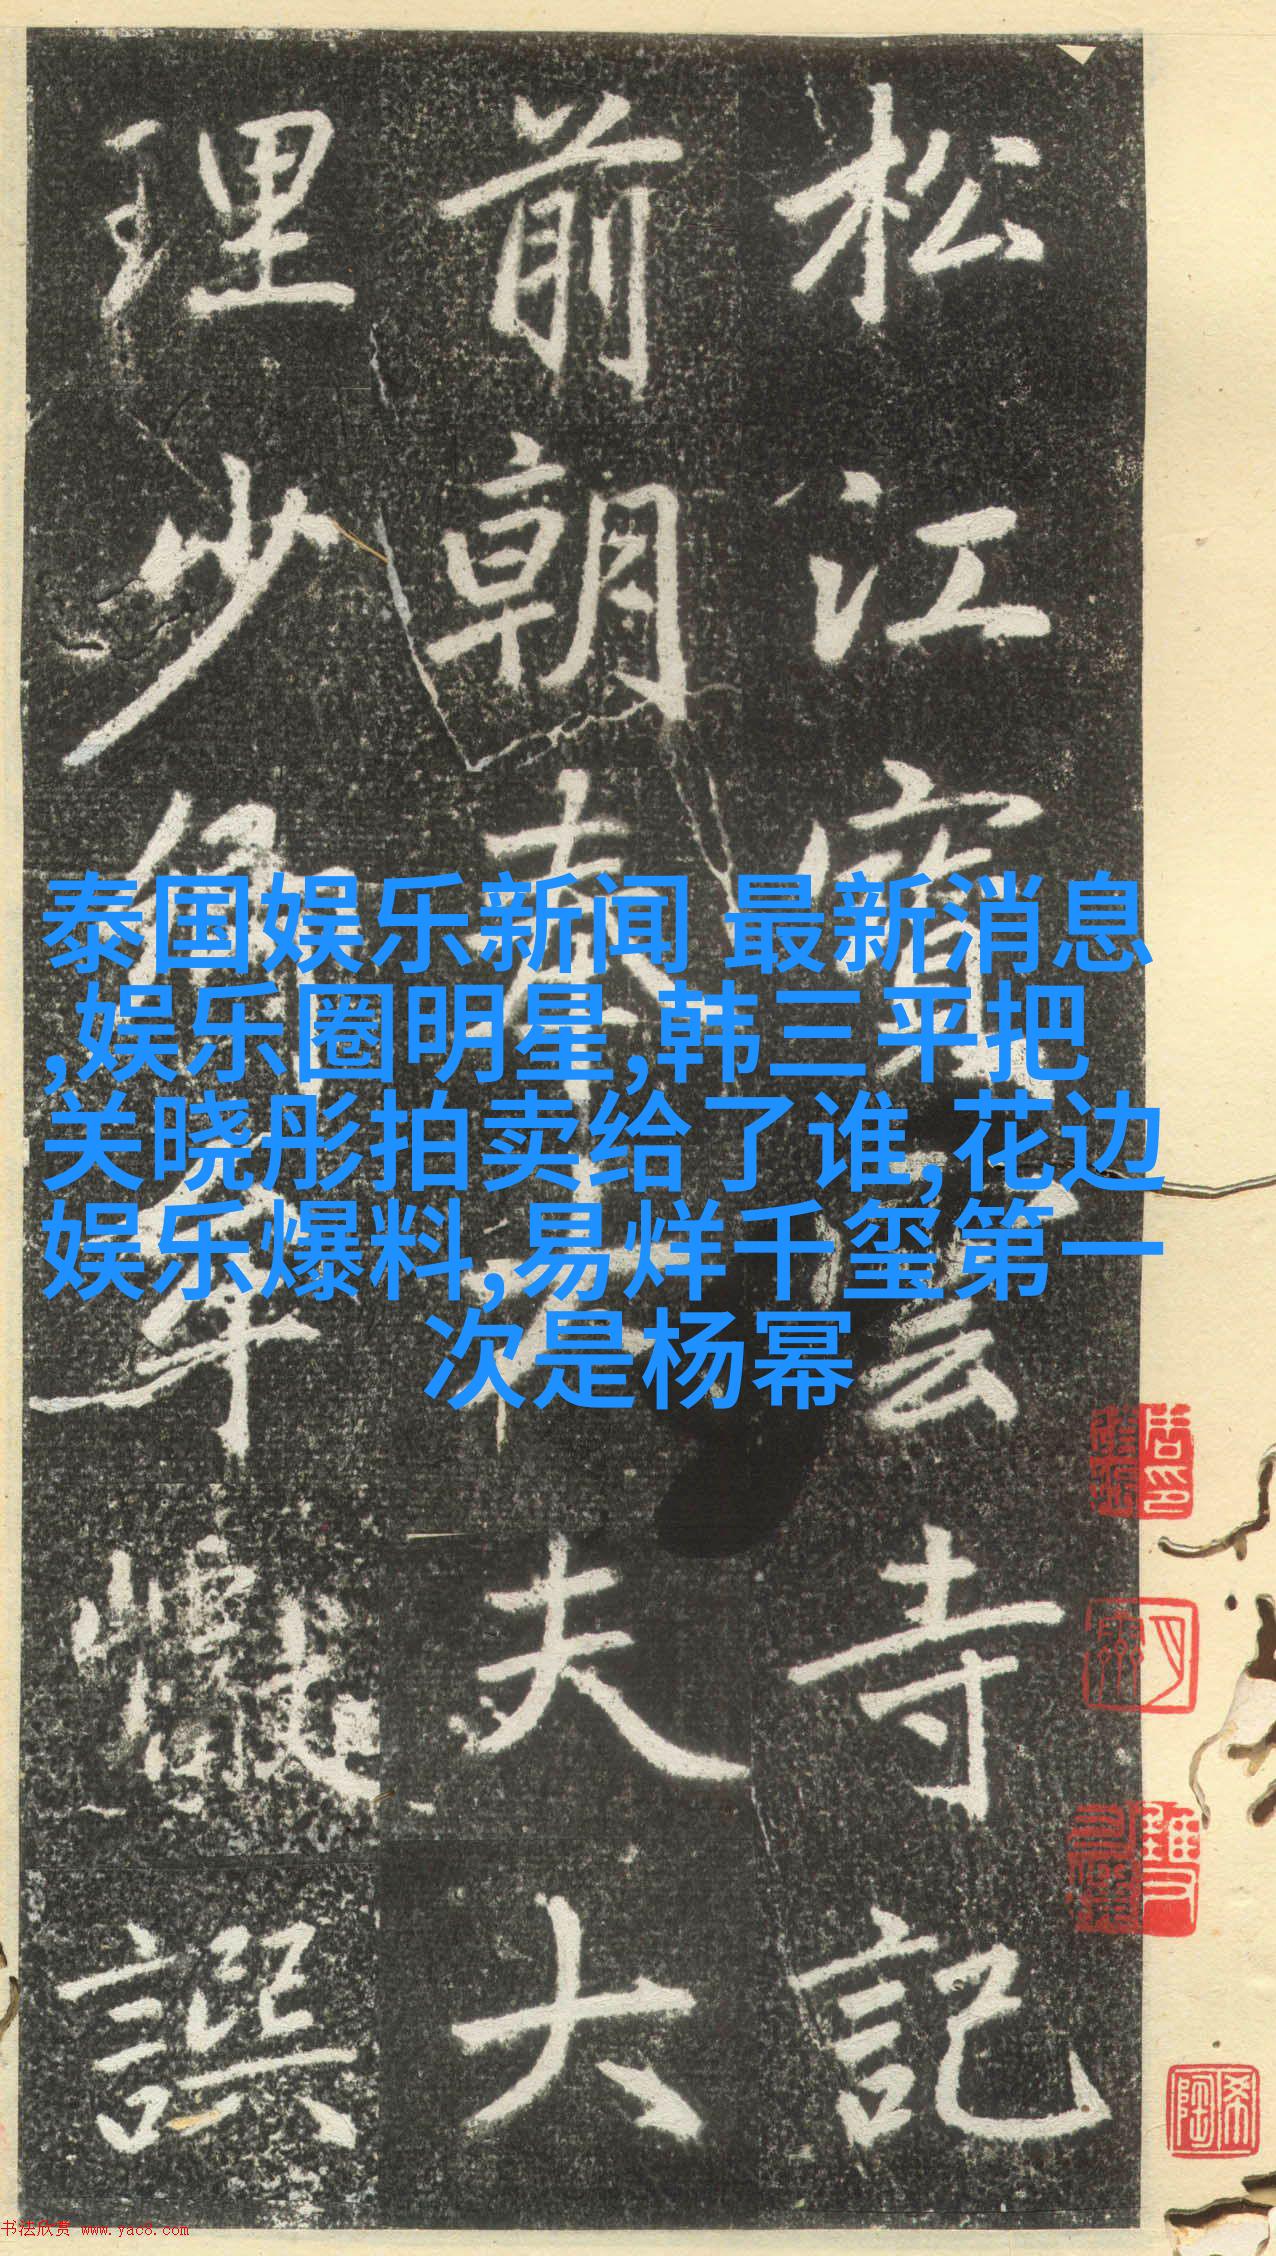 松江寶雲寺記
前朝奉大夫大
理少卿牟巘譔
泰国娱乐新闻 最新消息
,娱乐圈明星,韩三平把
关晓彤拍卖给了谁,花边
娱乐爆料,易烊千玺第一
次是杨幂
希陶
书法欣赏 www.yac8.com